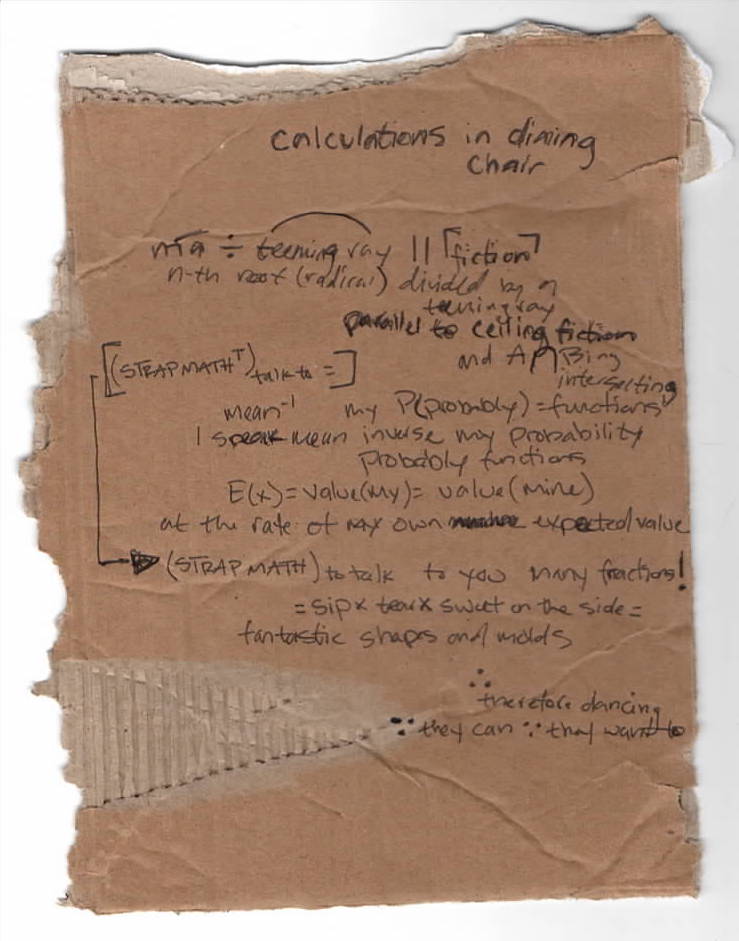 calculations in dining
chair
n√a ÷ teeming ray || ⌈fiction⌉
n-th root (radical) divided by a
teeming ray
parallel to ceiling fiction
and A ∩ Bing
intersecting
[(STRAPMATHᵀ) talk to = ]
mean⁻¹ my P(probably) = functions
I speak mean inverse my probability
probably functions
E(x) = value(my) = value(mine)
at the rate of my own expected value
(STRAPMATH) to talk to you many fractions!
= sip x tear x sweet on the side =
fantastic shapes and molds
∴
therefore dancing
∵ they can ∵ they want to